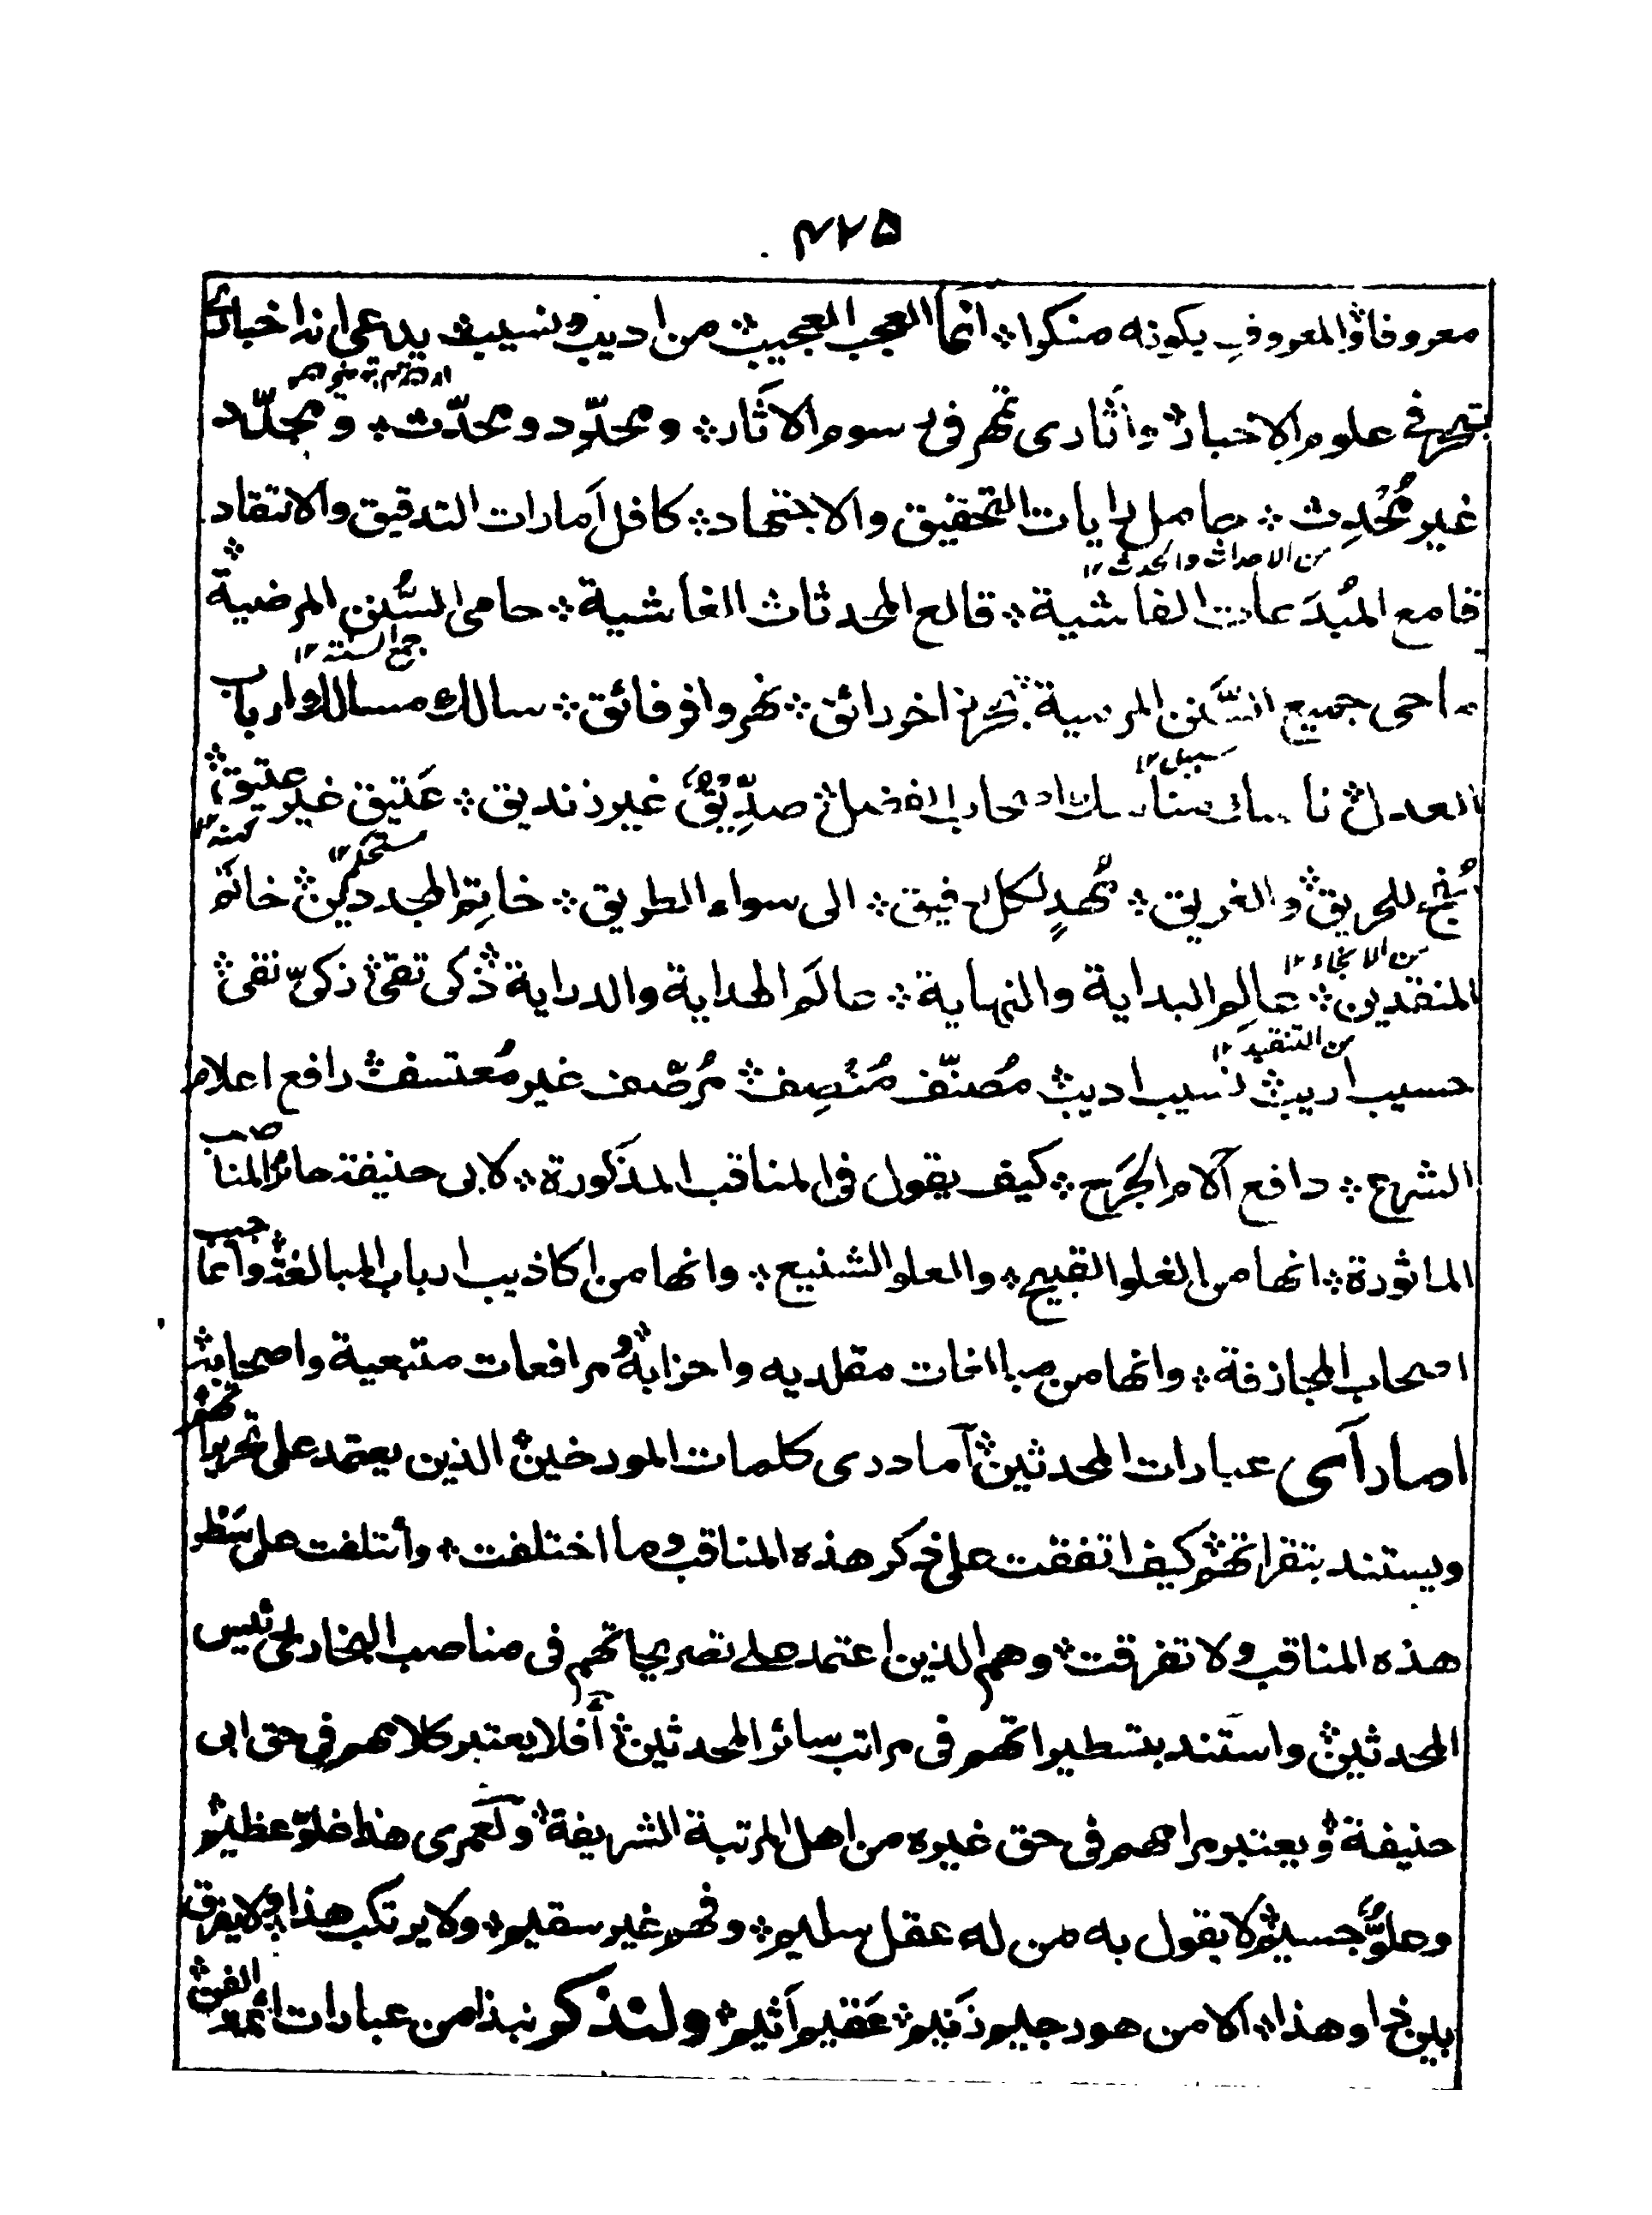 ۴۲۵
معروفا والمعروف بكونه منكرا ؞ انما العجب العجيب ؞ من اديب ونسيب ؞ يدعى انه اخبارى
تبحر فى علوم الاخبار ؞ وأثارى تمهر فى رسوم الآثار ؞ ومجدِّد ومحدّث ؞ ومجدّد
غير مُحْدِث ؞ حامل رايات التحقيق والاجتهاد ؞ كافل أمارات التدقيق والانتقاد ؞
من الاحداث والحدث ١٢
قامع المُبدَعات الفاشية ؞ قالع المحدثات الغاشية ؞ حامى السُّنن المرضية
جمع السنة ١٢
ماحى جميع السَّنن المرمية ؞ بحر زاخر رائق ؞ نهر وافر فائق ؞ سالك مسالك ارباب
سبيل ١٢
العدل ؞ ناسك مناسك اصحاب الفضل ؞ صدِّيق غير زنديق ؞ عَتيق غير عتيق ؞
كهنه ١٢
مُنجٍ للحريق والغريق ؞ مُهدٍ لكل رفيق ؞ الى سواء الطريق ؞ خاتِم المجددين ؞ خاتَم
من الانجاء ١٢
المنقدين ؞ عالِم البداية والنهاية ؞ عالَم الهداية والدراية ؞ ذكى تقى ؞ زكىّ نقى ؞
من التنقيد ١٢
حسيب اريب ؞ نسيب اديب ؞ مُصنّف مُنْصِف ؞ مُرصّف غير مُعتسف ؞ رافع اعلام
الشرع ؞ دافع آلام الجَرح ؞ كيف يقول فى المناقب المذكورة ؞ لابى حنيفة حائز المناصب
الماثورة ؞ انها من الغلو القبيح ؞ والعلو الشنيع ؞ وانها من اكاذيب ارباب المبالغة ؞ واعاجيب
اصحاب المجازفة ؞ وانها من مبالغات مقلديه واحزابه ؞ ومرافعات متبعيه واصحابه ؞
اما رآى عبارات المحدثين ؞ آما درى كلمات المورخين ؞ الذين يعتمد على تحريراتهم ؞
ويستند بتقراتهم ؞ كيف اتفقت على ذكر هذه المناقب وما اختلفت ؞ وأتلفت على سَطر
هذه المناقب ولا تفرقت ؞ وهم الذين اعتمد على تصريحاتهم فى مناصب البخارى رئيس
المحدثين ؞ واستند بتسطيراتهم فى مراتب سائر المحدثين ؞ أفلا يعتبر كلامهم فى حق ابى
حنيفة ؞ ويعتبر مرامهم فى حق غيره من اهل المرتبة الشريفة ؞ ولَعمرى هذا غلوّ عظيم ؞
وعلوٌّ جسيم ؞ لا يقول به من له عقل سليم ؞ وفهم غير سقيم ؞ ولا يرتكب هذا ؞ ولا يفرق
بين ذا وهذا ؞ الا من هو رجيم زَنيم ؞ عَقيم اَثيم ؞ ولنذكر نبذا من عبارات ائمة الفن ؞